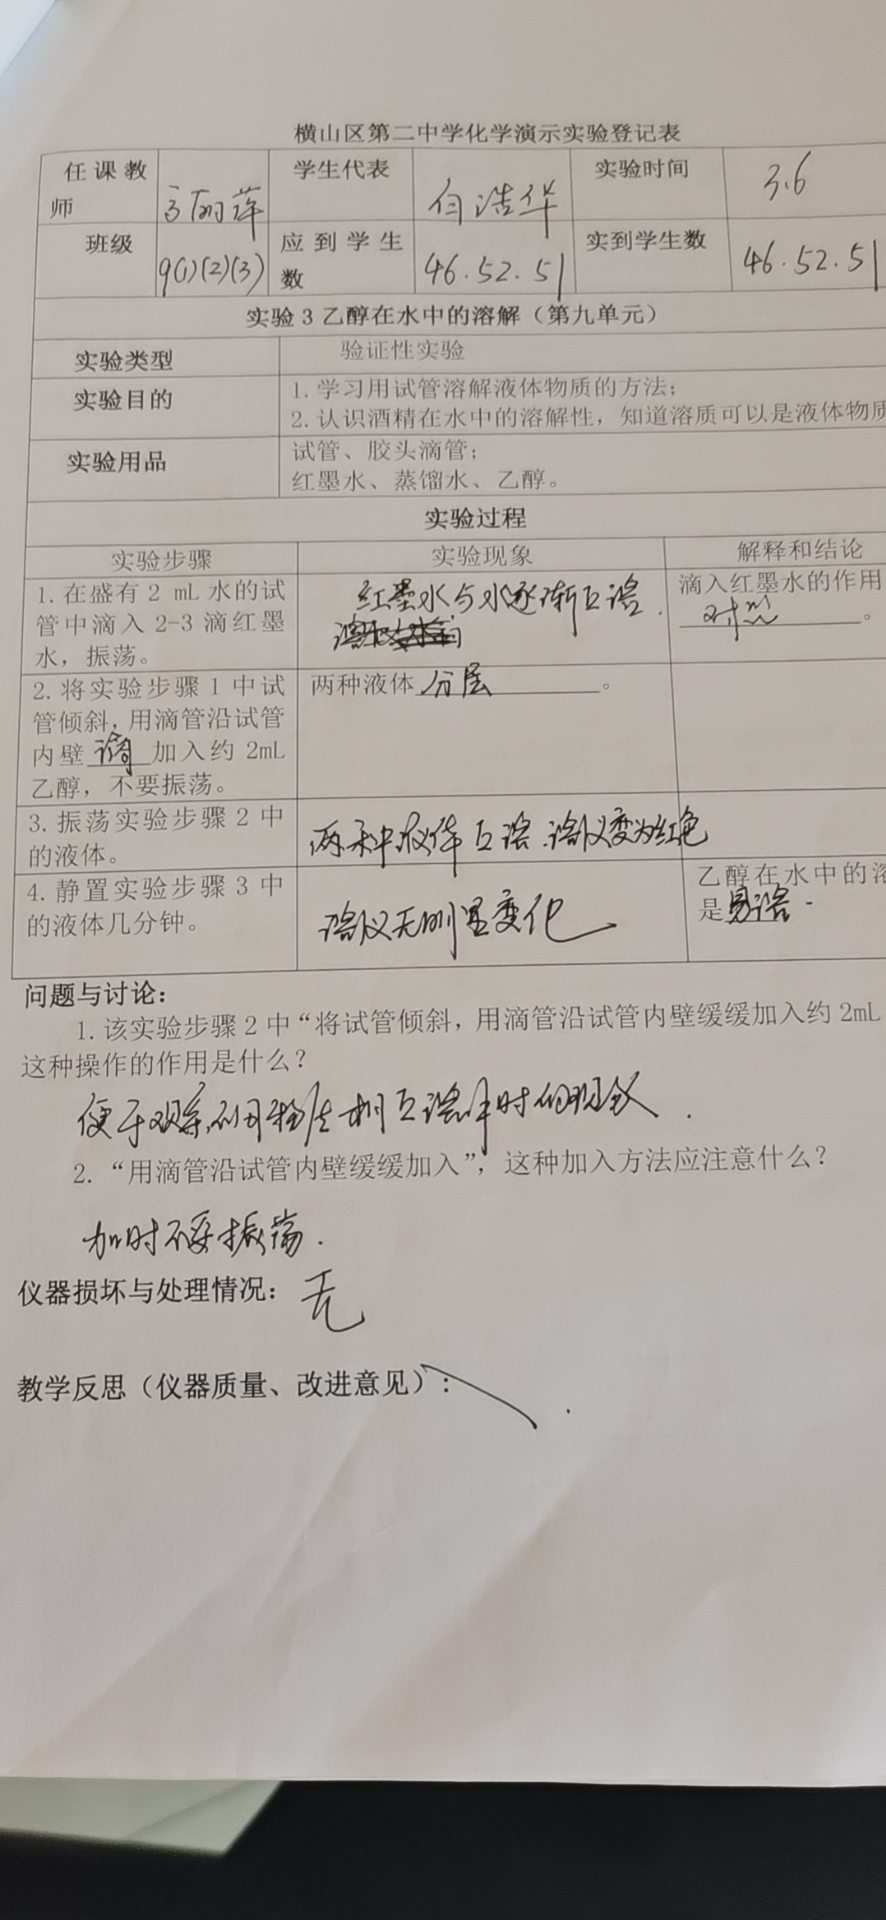 横山区第二中学化学演示实验登记表
任课教师 高丽萍 学生代表 白浩华 实验时间 3.6
班级 9(1)(2)(3) 应到学生数 46.52.51 实到学生数 46.52.51
实验3乙醇在水中的溶解（第九单元）
实验类型 验证性实验
实验目的 1.学习用试管溶解液体物质的方法；
2.认识酒精在水中的溶解性，知道溶质可以是液体物质
实验用品 试管、胶头滴管；
红墨水、蒸馏水、乙醇。
实验过程
实验步骤 实验现象 解释和结论
1.在盛有2 mL水的试
管中滴入2-3滴红墨
水，振荡。
红墨水与水逐渐互溶.
滴入红墨水的作用
对比。
2.将实验步骤1中试
管倾斜，用滴管沿试管
内壁 加入约2mL
乙醇，不要振荡。
两种液体分层。
3.振荡实验步骤2中
的液体。
两种液体互溶.溶液变为红色
4.静置实验步骤3中
的液体几分钟。
溶液无明显变化
乙醇在水中的溶
是易溶.
问题与讨论：
1.该实验步骤2中“将试管倾斜，用滴管沿试管内壁缓缓加入约2mL
这种操作的作用是什么？
便于观察不同物质相互溶解时的现象.
2.“用滴管沿试管内壁缓缓加入”，这种加入方法应注意什么？
加时不要振荡.
仪器损坏与处理情况：无
教学反思（仪器质量、改进意见）：